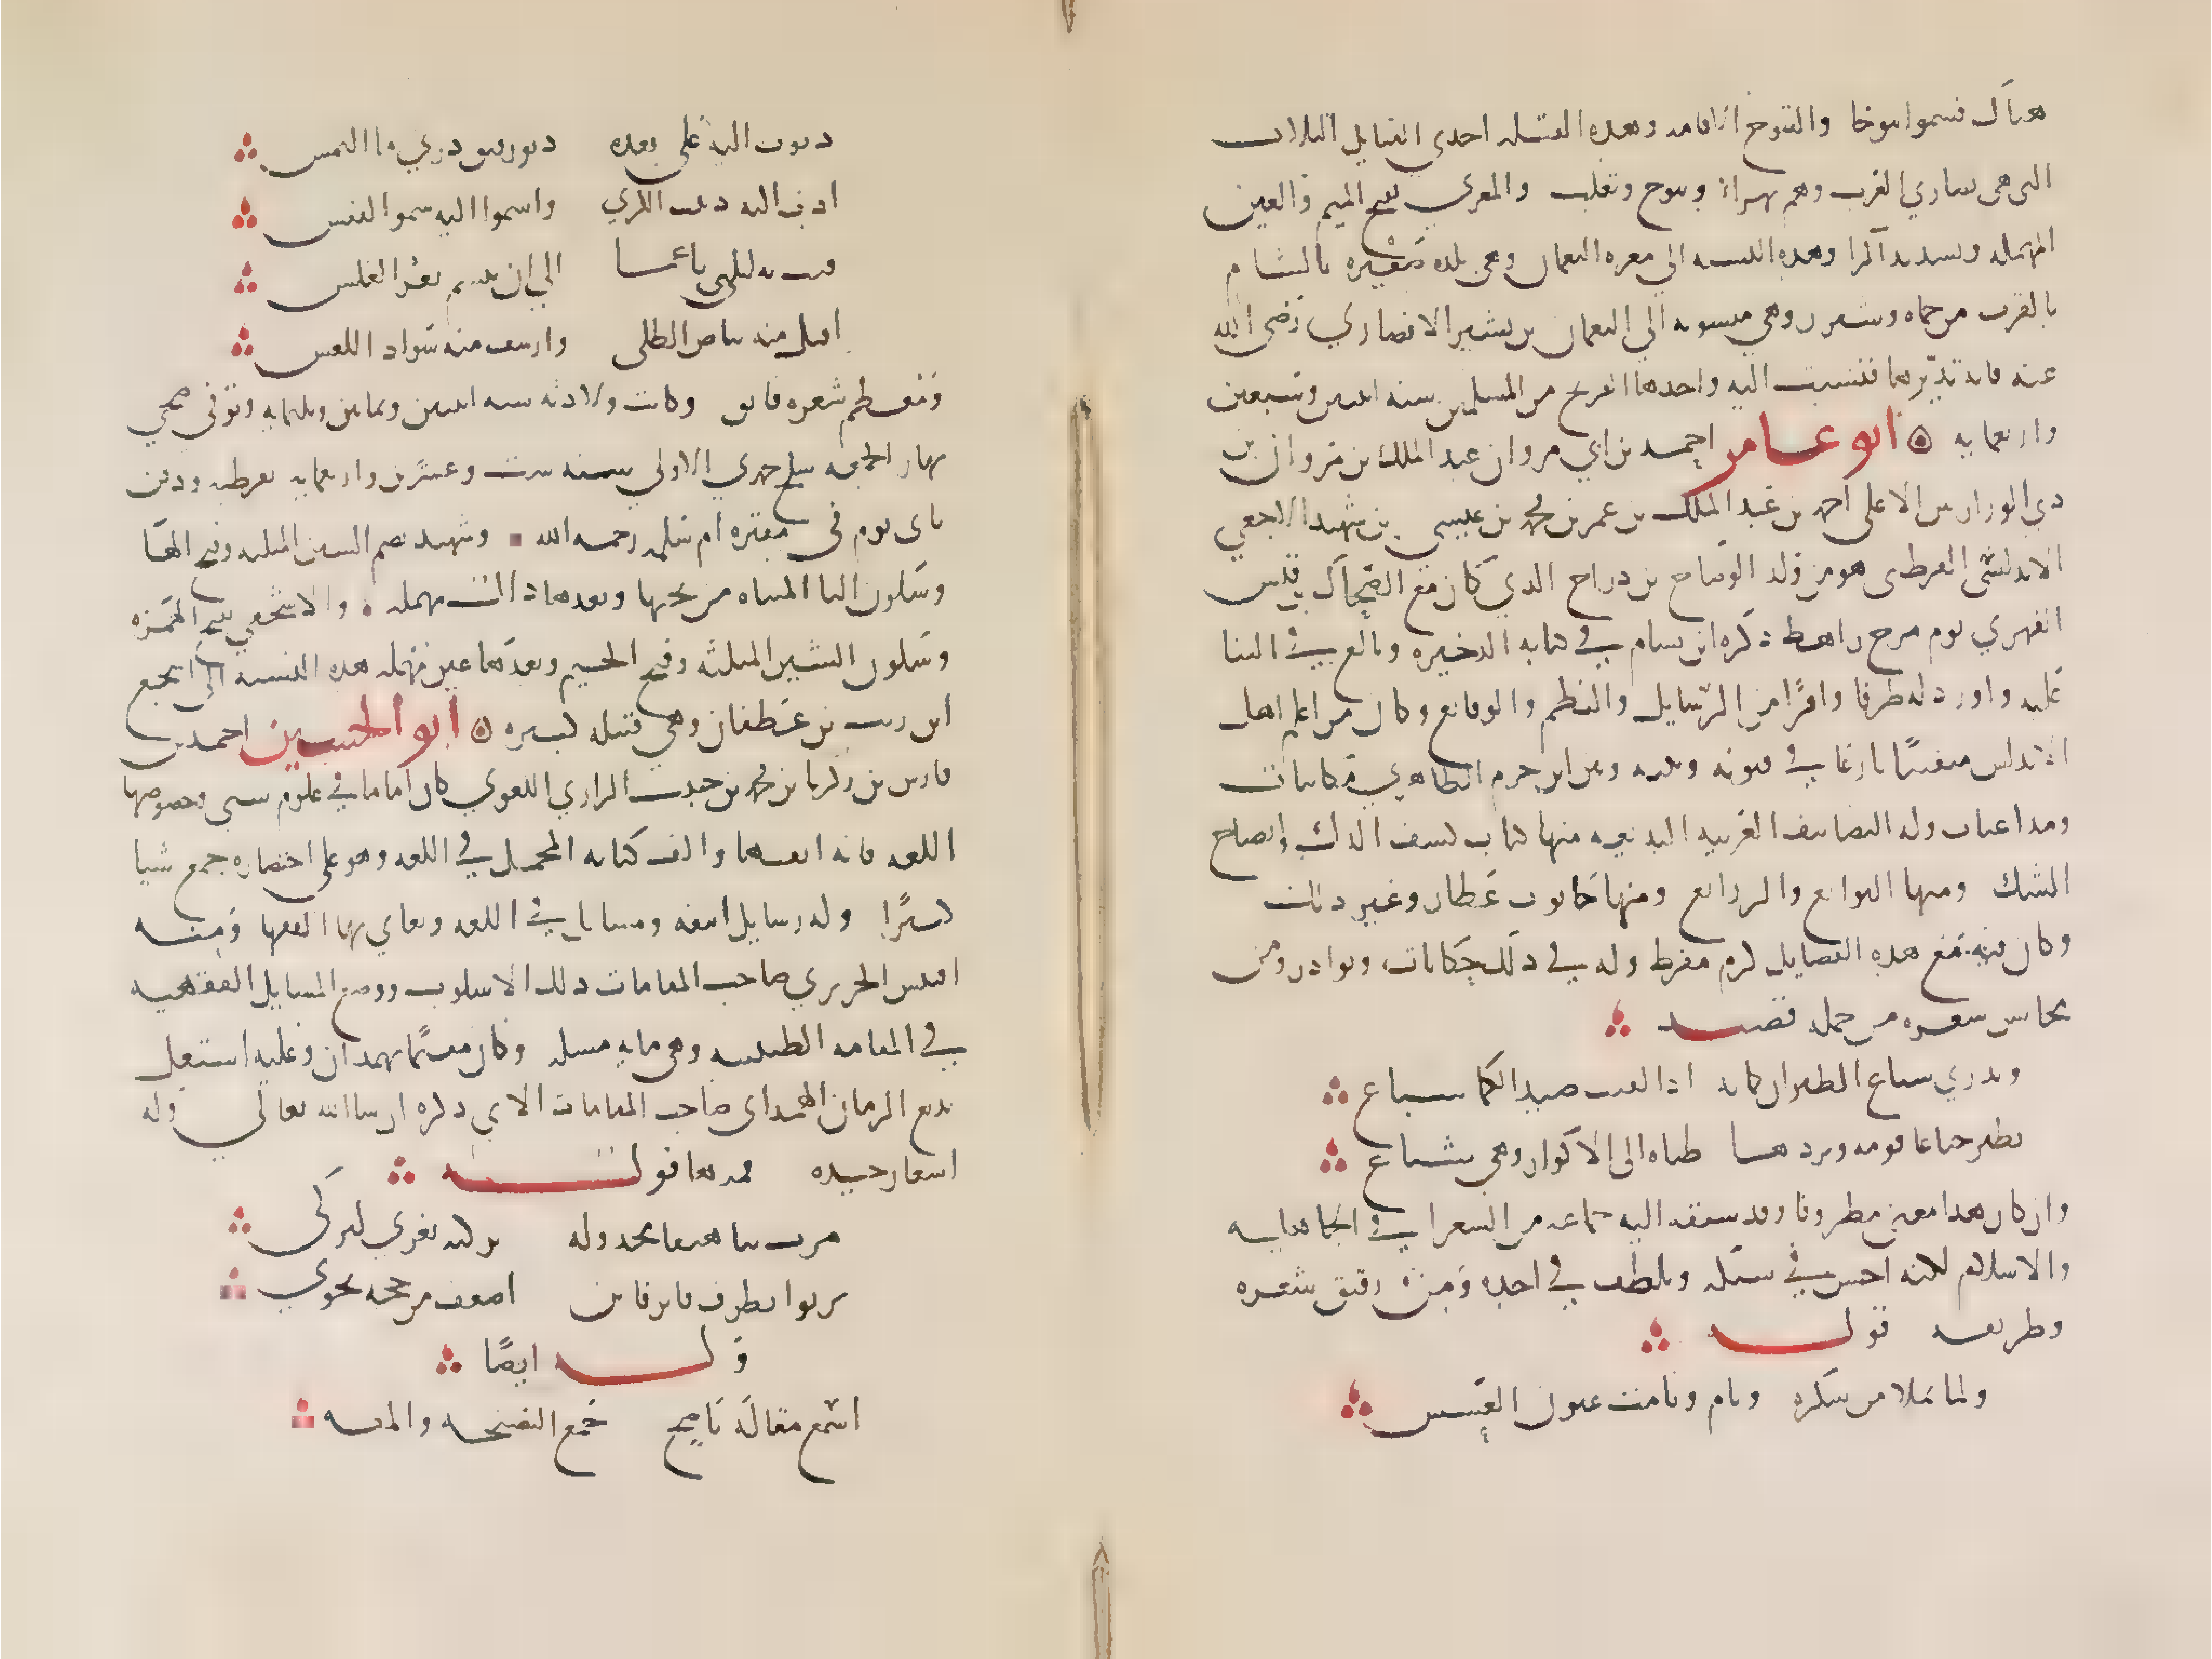 هناك فسموا تنوخا والتنوخ الاقامه وهذه القبيله احدى القبايل الثلاث
التي هي نصاري العرب وهم بهراء وتنوخ وتغلب والمعري بفتح الميم والعين
المهمله وتشديد الرا وهذه النسبه الي معره النعمان وهي بلده صغيره بالشام
بالقرب من حماه وشيزر وهي منسوبه الي النعمان بن بشير الانصاري رضي الله
عنه فانه تديرها فنسبت اليه واخدها الفرنج من المسلمين سنه اثنين وتسعين
واربعمايه ابو عامر احمد بن ابي مروان عبد الملك بن مروان بن
ذي الوزارتين الاعلي احمد بن عبد الملك بن عمر بن محمد بن عيسي بن شهيد الاشجعي
الاندلسي القرطبي هو من ولد الوضاح بن دراح الذي كان مع الضحاك بن قيس
الفهري يوم مرج راهط ذكره ابن بسام في كتابه الذخيره وبالغ في الثنا
عليه واورد له طرفا وافرا من الرسايل والنظم والوقايع وكان من اعلم اهل
الاندلس متفننا بارعا في فنونه وبينه وبين ابن حزم الظاهري مكاتبات
ومداعبات وله التصانيف الغريبه البديعه منها كتاب كشف الدك وايضاح
الشك ومنها التوابع والزوابع ومنها حانوت عطار وغير ذلك
وكان فيه مع هذه الفضايل كرم مفرط وله في ذلك حكايات ونوادر ومن
محاسن شعره من جمله قصيد
وتدري سباع الطير ان كماته اذا لقيت صيد الكماه سباع
تطير جياعا فوقه وتردها ظباه الى الاوكار وهي شباع
وان كان هذا معني مطروقا وقد سبقه اليه جماعه من الشعرا في الجاهليه
والاسلام لكنه احسن في سبكه وتلطف في اخذه ومن رقيق شعره
وظريفه قوله
ولما تملا من سكره ونام ونامت عيون العسس
دنوت اليه علي بعده دنو رفيق دري ما التمس
ادب اليه دبيب الكري واسموا اليه سمو النفس
فبت به ليلتي ناعما الي ان تبسم ثغر الغلس
اقبل منه بياض الطلي وارشف منه سواد اللعس
ومعظم شعره فايق وكانت ولادته سنه اثنين وثمانين وثلثمايه وتوفي ضحي
نهار الجمعه سلخ جمدي الاولي سنه ست وعشرين واربعمايه بقرطبه ودفن
ثاني يوم في مقبره ام سلمه رحمه الله وشهيد بضم الشين المثلثه وفتح الها
وسكون اليا المثناه من تحتها وبعدها دال مهمله والاشجعي بفتح الهمزه
وسكون الشين المثلثه وفتح الجيم وبعدها عين مهمله هذه النسبه الي اشجع
ابن ريث بن غطفان وهي قبيله كبيره ابو الحسين احمد بن
فارس بن زكريا بن محمد بن حبيب الرازي اللغوي كان اماما في علوم شتي وخصوصا
اللغه فانه اتقنها والف كتابه المجمل في اللغه وهو علي اختصاره جمع شيا
كثيرا وله رسايل انيقه ومسايل في اللغه وتعاي بها الفقها ومنه
اقتبس الحريري صاحب المقامات ذلك الاسلوب ووضع المسايل الفقهيه
في المقامه الطيبيه وهي مايه مسله وكان مقيما بهمدان وعليه اشتغل
بديع الزمان الهمداني صاحب المقامات الاتي ذكره ان شا الله تعالي وله
اشعار جيده فمنها قوله
مرت بنا هيفا مجدوله تركيه تعزي لتركي
ترنوا بطرف فاتر فاتن اضعف من حجه نحوي
وله ايضا
اسمع مقاله ناصح جمع النصيحه والمقه